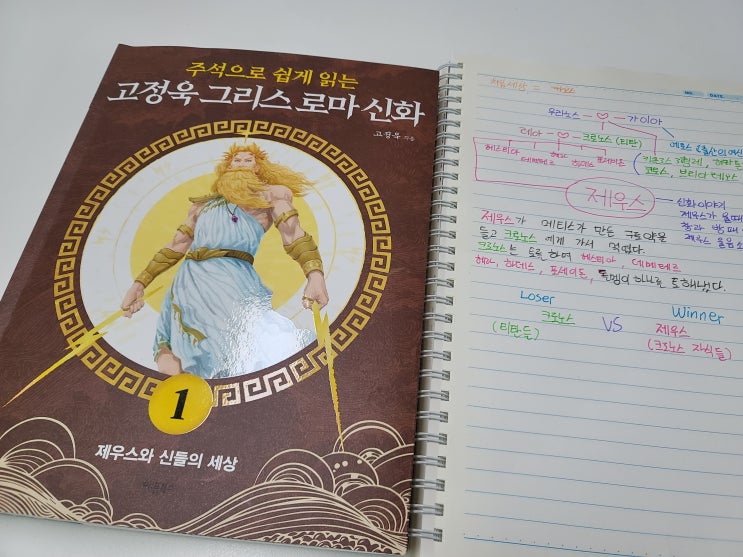 주석으로 쉽게 읽는
고정욱 그리스 로마 신화
고정욱 지음
1
제우스와 신들의 세상
NO. DATE
우라노스 ♡ 가이아
레아 ♡ 크로노스 (티탄)
헤스티아 데메테르 헤라 하데스 포세이돈
제우스
신화이야기
제우스가 울때
제우스 울음소
제우스가 메티스가 만든 구토약을
들고 크로노스 에게 가서 먹였다.
크로노스는 토를 하여 헤스티아, 데메테르
헤라, 하데스, 포세이돈, 돌멩이 하나를 토해냈다.
Loser Winner
크로노스 VS 제우스
(티탄들) (크로노스 자식들)